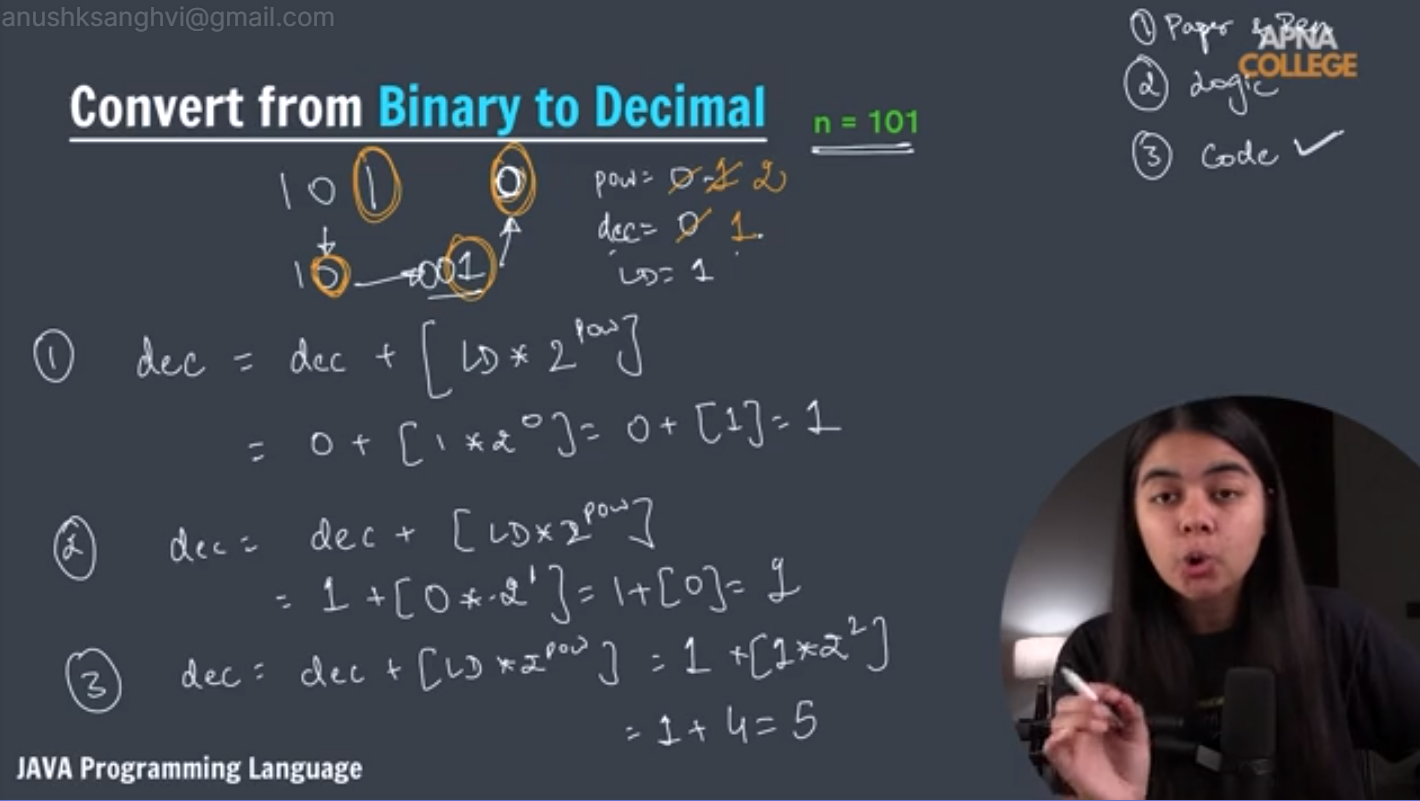 anushksanghvi@gmail.com
① Paper & Pen
APNA
COLLEGE
② Logic
③ Code ✓
Convert from Binary to Decimal
n = 101
1 0 1 0
pow = 0 1 2
dec = 0 1.
10 → 001
LD = 1
① dec = dec + [LD * 2^pow]
= 0 + [1 * 2^0] = 0 + [1] = 1
② dec = dec + [LD * 2^pow]
= 1 + [0 * 2^1] = 1 + [0] = 1
③ dec = dec + [LD * 2^pow] = 1 + [1 * 2^2]
= 1 + 4 = 5
JAVA Programming Language